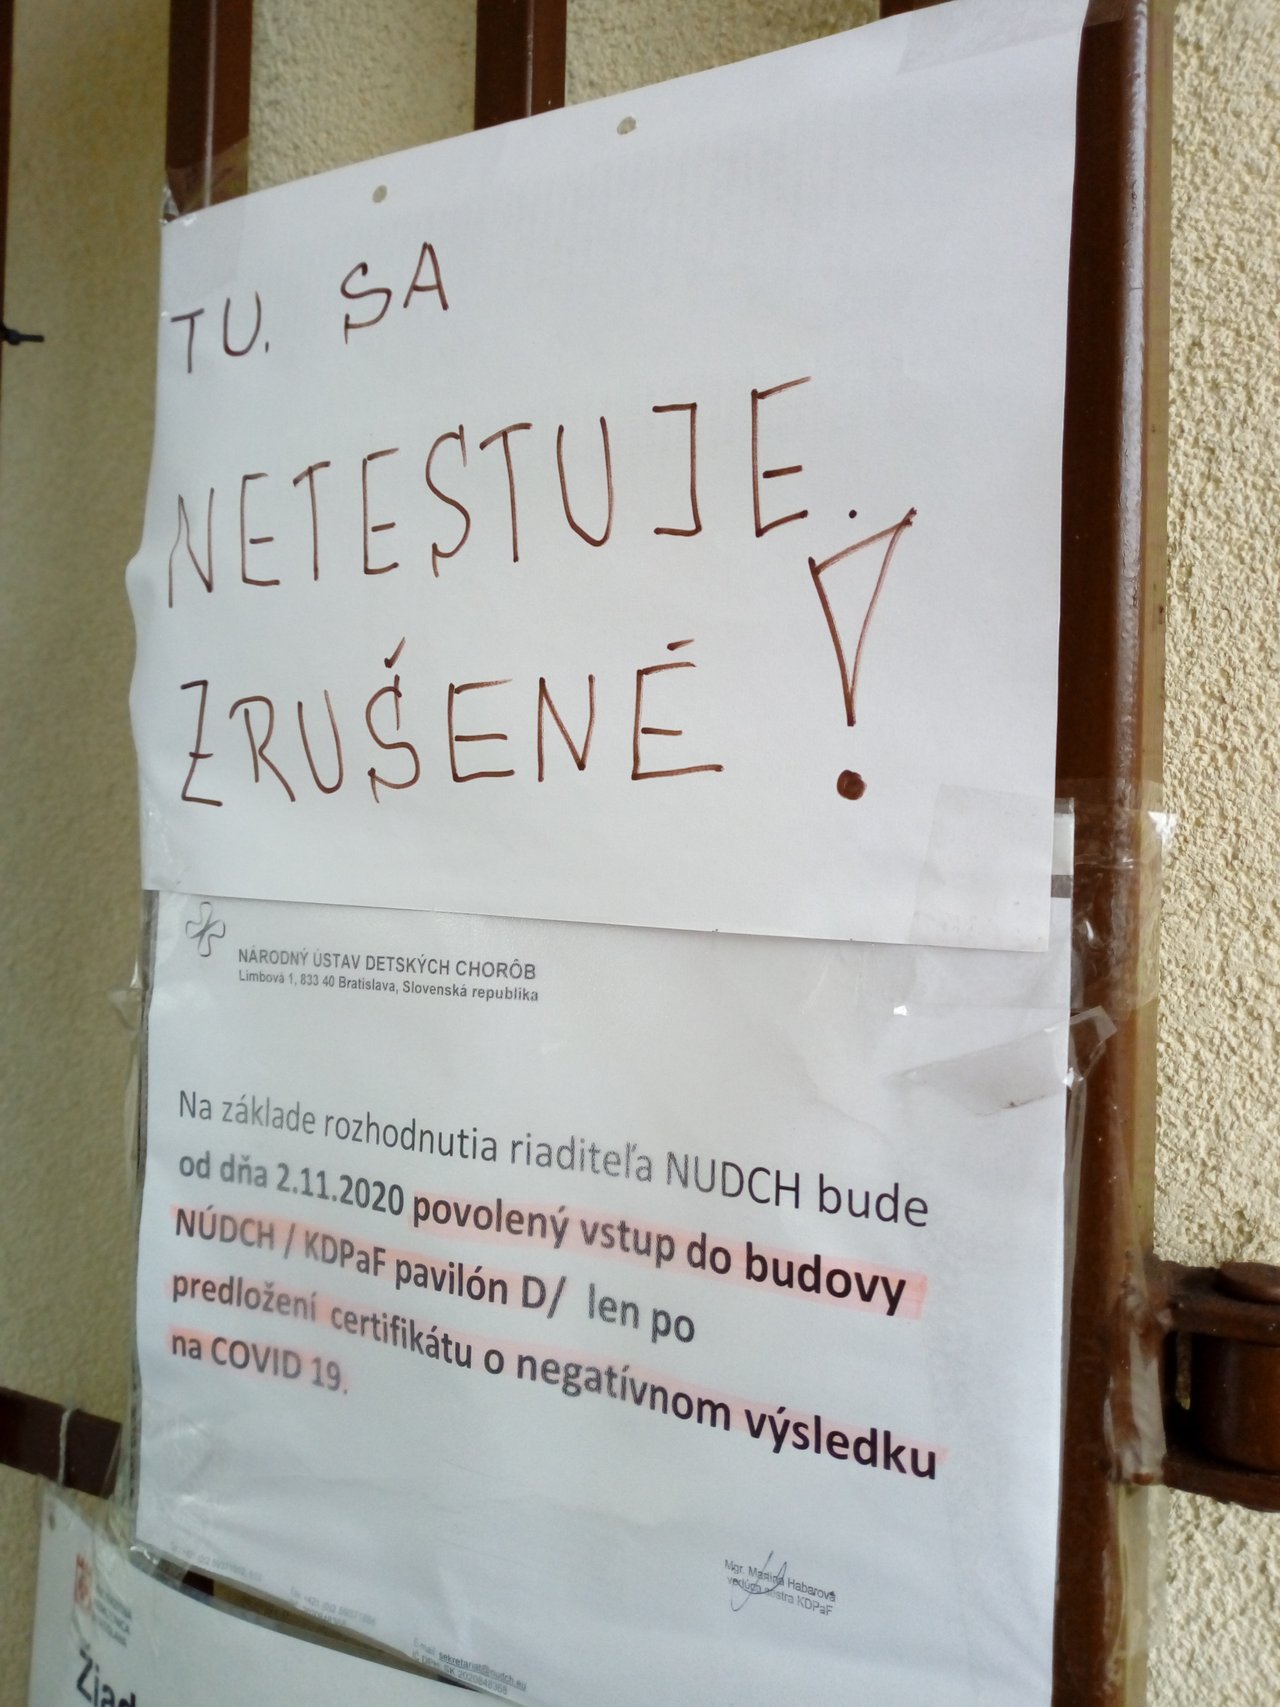 TU. SA
NETESTUJE.
ZRUŠENÉ !
NÁRODNÝ ÚSTAV DETSKÝCH CHORÔB
Limbová 1, 833 40 Bratislava, Slovenská republika
Na základe rozhodnutia riaditeľa NUDCH bude
od dňa 2.11.2020 povolený vstup do budovy
NÚDCH / KDPaF pavilón D/ len po
predložení certifikátu o negatívnom výsledku
na COVID 19.
Mgr. Marína Habarová
vedúca sestra KDPaF
E-mail: sekretariat@nudch.eu
IČ DPH: SK 2020848368
Žiad